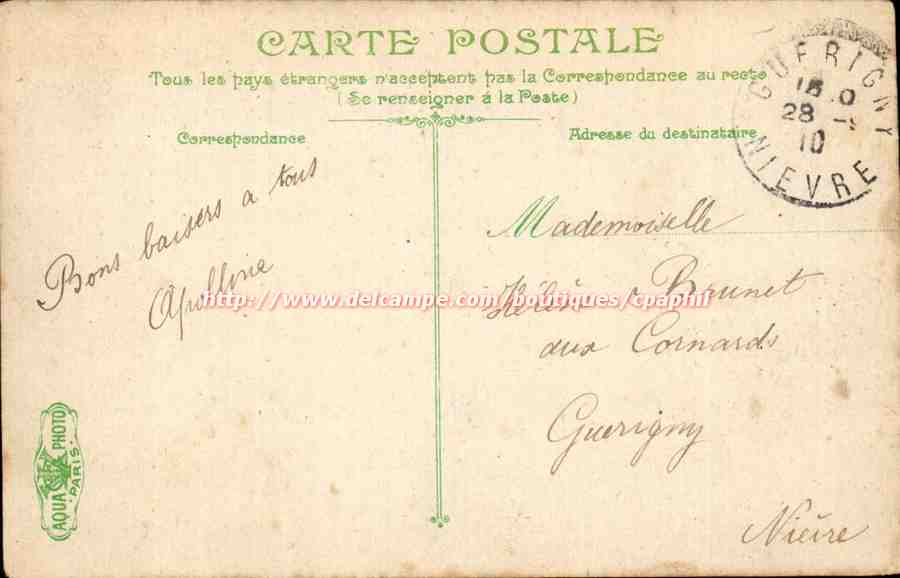 CARTE POSTALE
Tous les pays étrangers n'acceptent pas la Correspondance au recto
(Se renseigner à la Poste)
Correspondance
Adresse du destinataire
GUERIGNY
28
10
NIEVRE
Bons baisers a tous
Apolline
Mademoiselle
Hélène Brunet
aux Cornards
Guerigny
Nièvre
http://www.delcampe.com/boutiques/cpaphil
AQUA PHOTO
PARIS